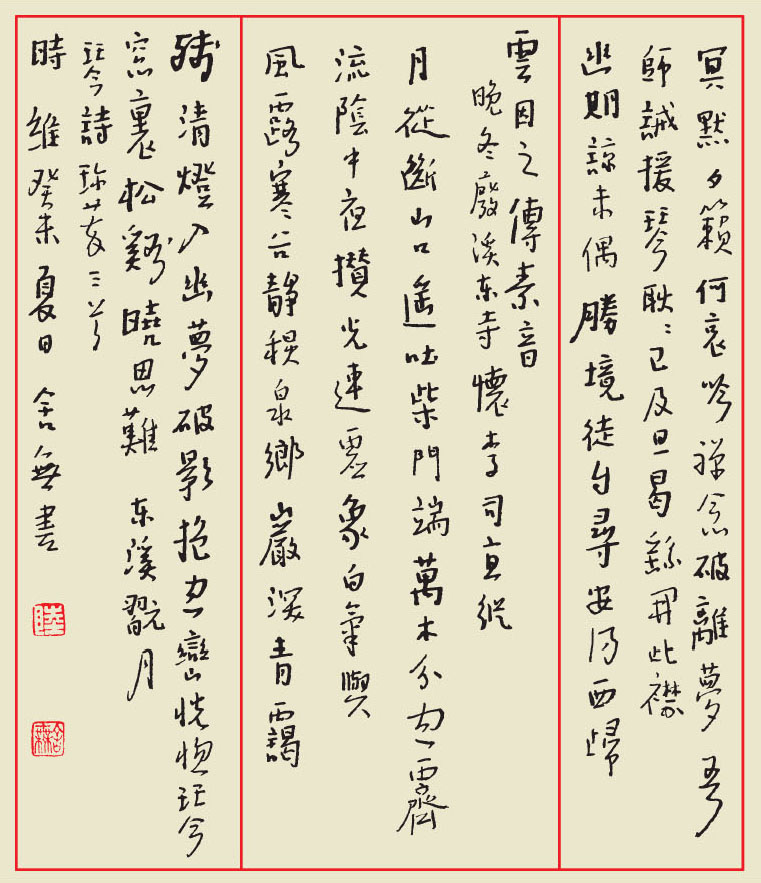 冥默夕籟何哀吟禪念破離夢吾
師誡援琴耿耿已及旦曷繇開此襟
幽期諒未偶勝境徒自尋安得西歸
雲因之傳素音
晚冬廢溪東寺懷李司直縱
月從斷山口遙吐柴門端萬木分空霽
流陰中夜攢光連虛象白氣與
風露寒谷靜秋泉鄉巖深青靄
殘清燈入幽夢破影抱空巒恍惚琴
窓裏松谿曉思難 東溪翫月
琴詩 三首
時維癸未夏日 舍無書